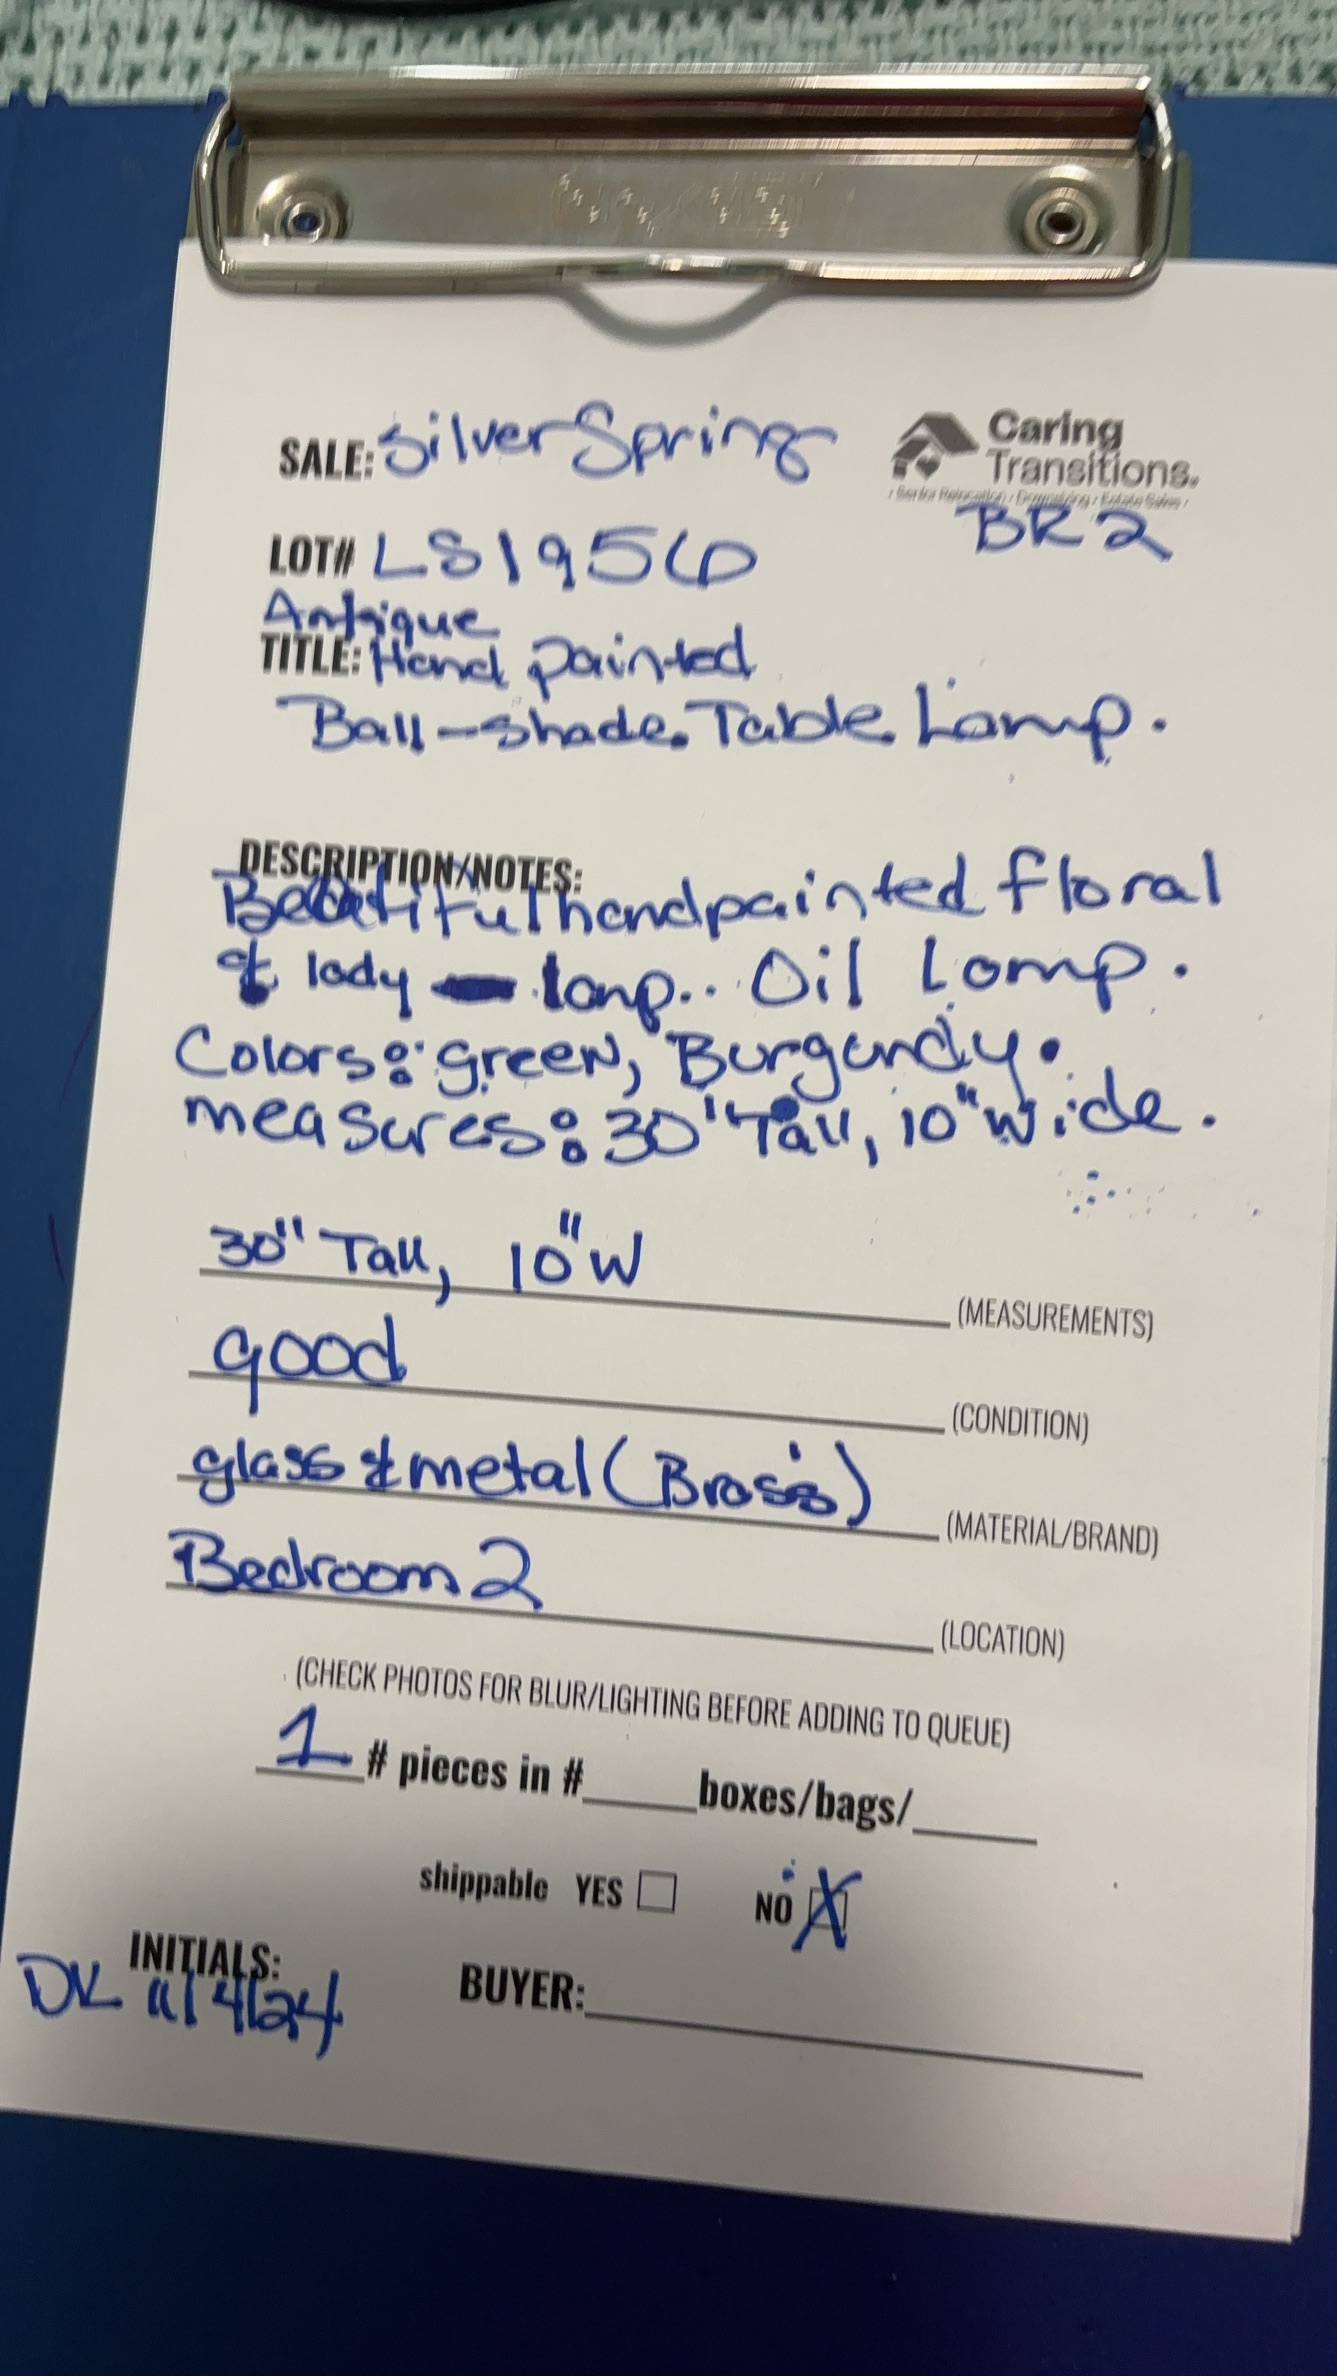 SALE: Silver Spring
Caring
Transitions.
Senior Relocation • Downsizing • Estate Sales
BR 2
LOT# LS1956
Antique
TITLE: Hand painted
Ball-shade. Table Lamp.
DESCRIPTION/NOTES:
Beautiful handpainted floral
& lady lamp.. Oil Lamp.
Colors: green, Burgundy.
measures: 30" Tall, 10" Wide.
30" Tall, 10" W
(MEASUREMENTS)
good
(CONDITION)
glass & metal (Brass)
(MATERIAL/BRAND)
Bedroom 2
(LOCATION)
(CHECK PHOTOS FOR BLUR/LIGHTING BEFORE ADDING TO QUEUE)
1 # pieces in #____ boxes/bags/____
shippable YES ☐ NO ☒
INITIALS:
DK 11/4/24
BUYER: